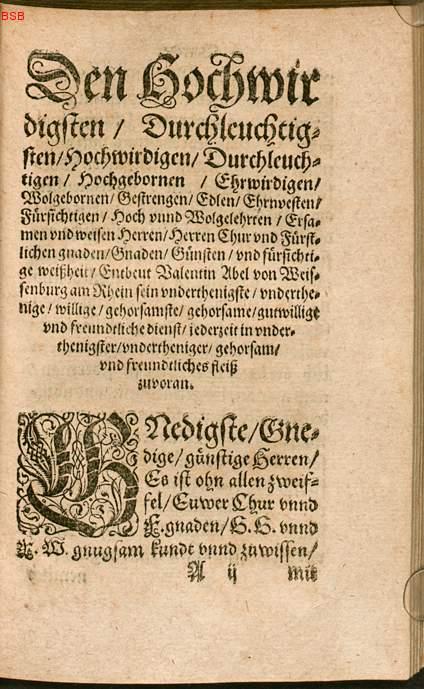 BSB
Den Hochwir
digsten / Durchleuchtig-
sten / Hochwirdigen / Durchleuch-
tigen / Hochgebornen / Ehrwirdigen /
Wolgebornen / Gestrengen / Edlen / Ehrnvesten /
Fürsichtigen / Hoch vnnd Wolgelehrten / Ersa-
men vnd weisen Herren / Herren Chur vnd Fürst-
lichen gnaden / Gnaden / Günsten / vnd fürsichti-
ge weißheit / Entbeut Valentin Abel von Weis-
senburg am Rhein sein vnderthenigste / vnderthe-
nige / willige / gehorsamste / gehorsame / gutwillige
vnd freundtliche dienst / jederzeit in vnder-
thenigster / vndertheniger / gehorsam /
vnd freundtliches fleiß
zuvoran.
GNedigste / Gne-
dige / günstige Herren /
Es ist ohn allen zweif-
fel / Euwer Chur vnnd
F. gnaden / G. G. vnnd
F. W. gnugsam kundt vnnd zuwissen /
A ij mit